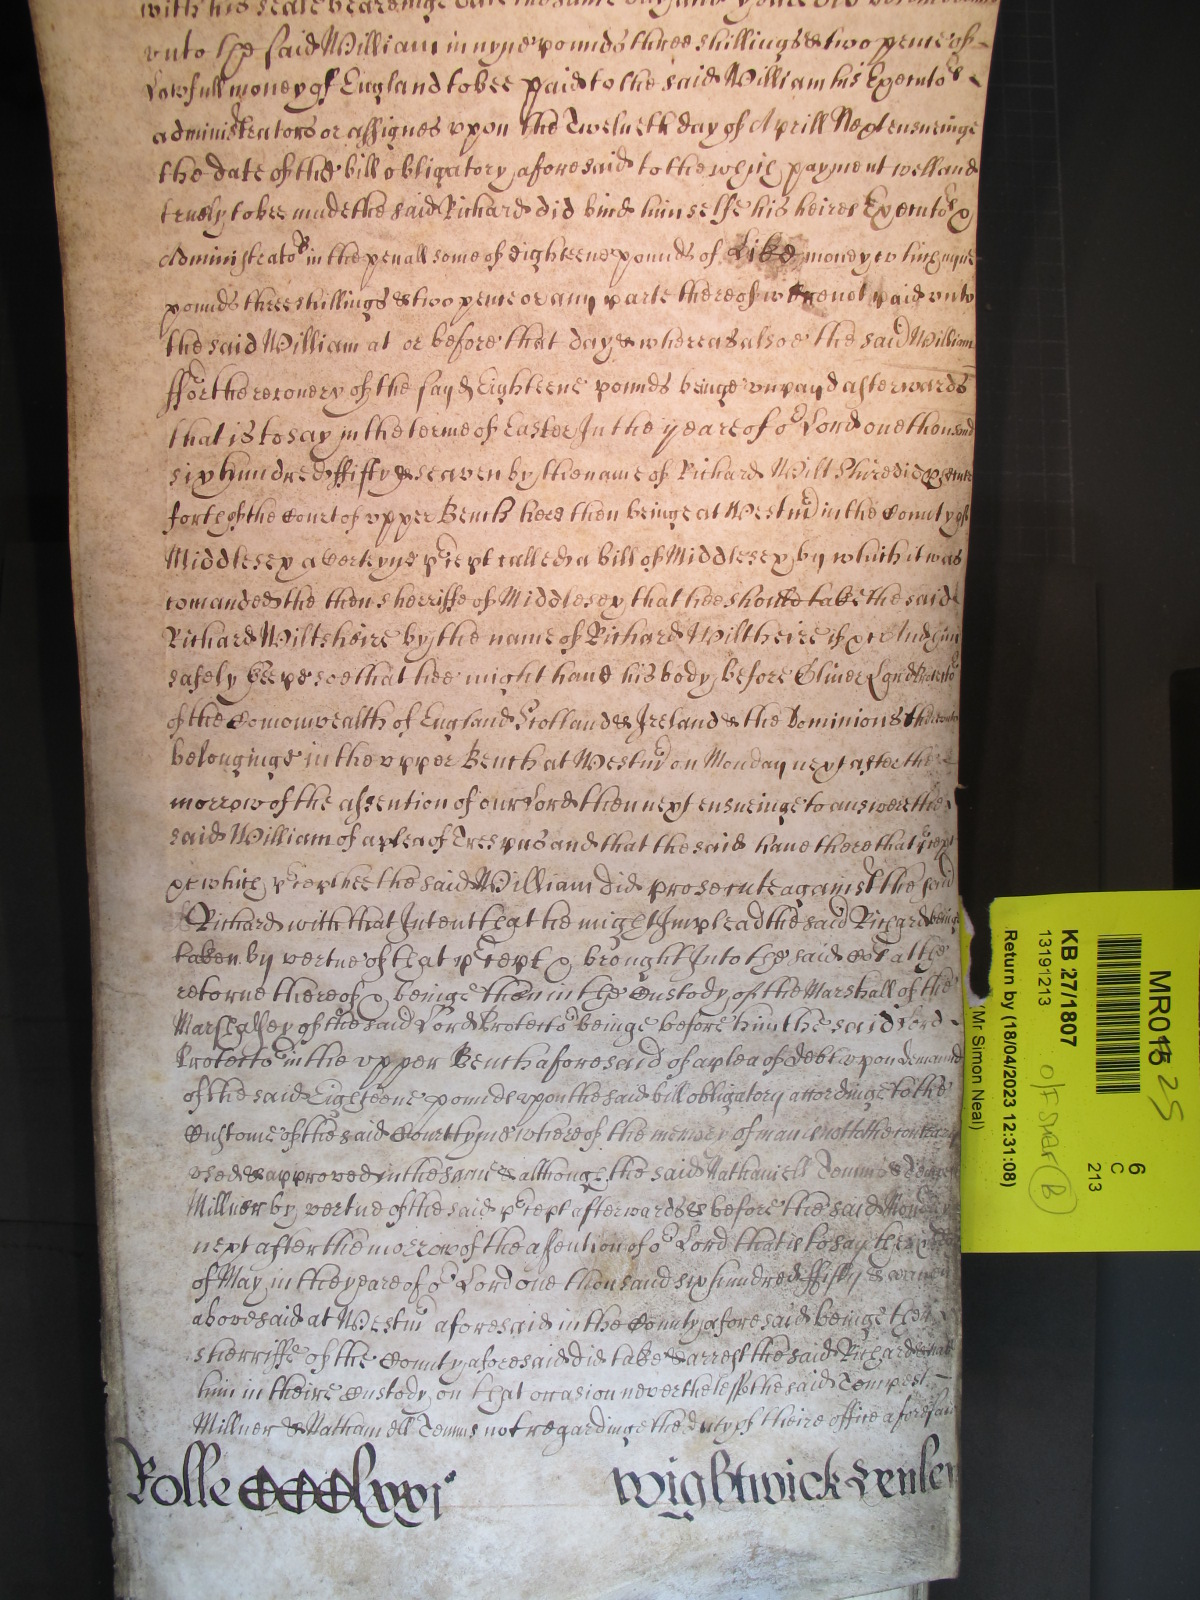 with his seale beareinge date the same day and yeare
vnto the said William in nyne pounds three shillings & two pence of
Lawfull money of England to bee paid to the said William his Executors
administrators or assignes vpon the Twelueth day of Aprill Next ensueinge
the date of the bill obligatory aforesaid to the which payment well and
truely to bee made the said Richard did bind himselfe his heires Executors &
Administrators in the penall some of eighteene pounds of Like money yf the nyne
pounds three shillings & two pence or any parte thereof were not paid vnto
the said William at or before that day & whereas alsoe the said William
ffor the recouery of the sayd Eighteene pounds beinge vnpayd afterwards
that is to say in the terme of Easter In the yeare of or Lord one thousand
six hundred ffifty & seaven by the name of Richard Wiltshire did
forth of the Court of vpper Bench here then beinge at Westmr in the County of
Middlesex a certeyne precept called a bill of Middlesex by which it was
comanded the then sherriffe of Middlesex that hee should take the said
Richard Wiltsheire by the name of Richard Wiltheire if &c And him
safely keepe soe that hee might haue his body before Oliuer Lord Protector
of the Comonwealth of England Scotland & Ireland & the Dominions thereunto
belonginge in the vpper Bench at Westmr on Monday next after the
morrow of the assention of our Lord then next ensueinge to answere the
said William of a plea of Trespas and that the said haue there that precept
which precept hee the said William did prosecute against the said
Richard with that Intent that he might Implead the said Richard beinge
taken by vertue of that precept & brought Into the said Cort at the
retorne thereof & beinge then in the Custody of the Marshall of the
Marshalsey of the said Lord Protector beinge before him the said Lord
Protector in the vpper Bench aforesaid of a plea of debt vpon demand
of the said Eighteene pounds vpon the said bill obligatory accordinge to the
Custome of the said Court tyme whereof the memory of man is not to the contrary
vsed & approved in the same & although the said Nathaniell Temms & Tempest
Millner by vertue of the said precept afterwards & before the said Monday
next after the morrow of the assention of or Lord that is to say the
of May in the yeare of or Lord one thousand six hundred ffifty & seaven
abovesaid at Westmr aforesaid in the County aforesaid beinge then
sherriffe of the County aforesaid did take & arrest the said Richard & had
him in theire Custody on that occasion neverthelesse the said Tempest
Millner & Nathaniell Temms not regardinge the duty of theire office aforesaid
Rolle CCClxxvj
Wightwick
MR015 25
6
C
213
KB 27/1807
13191213
Return by (18/04/2023 12:31:08)
(Mr Simon Neal)